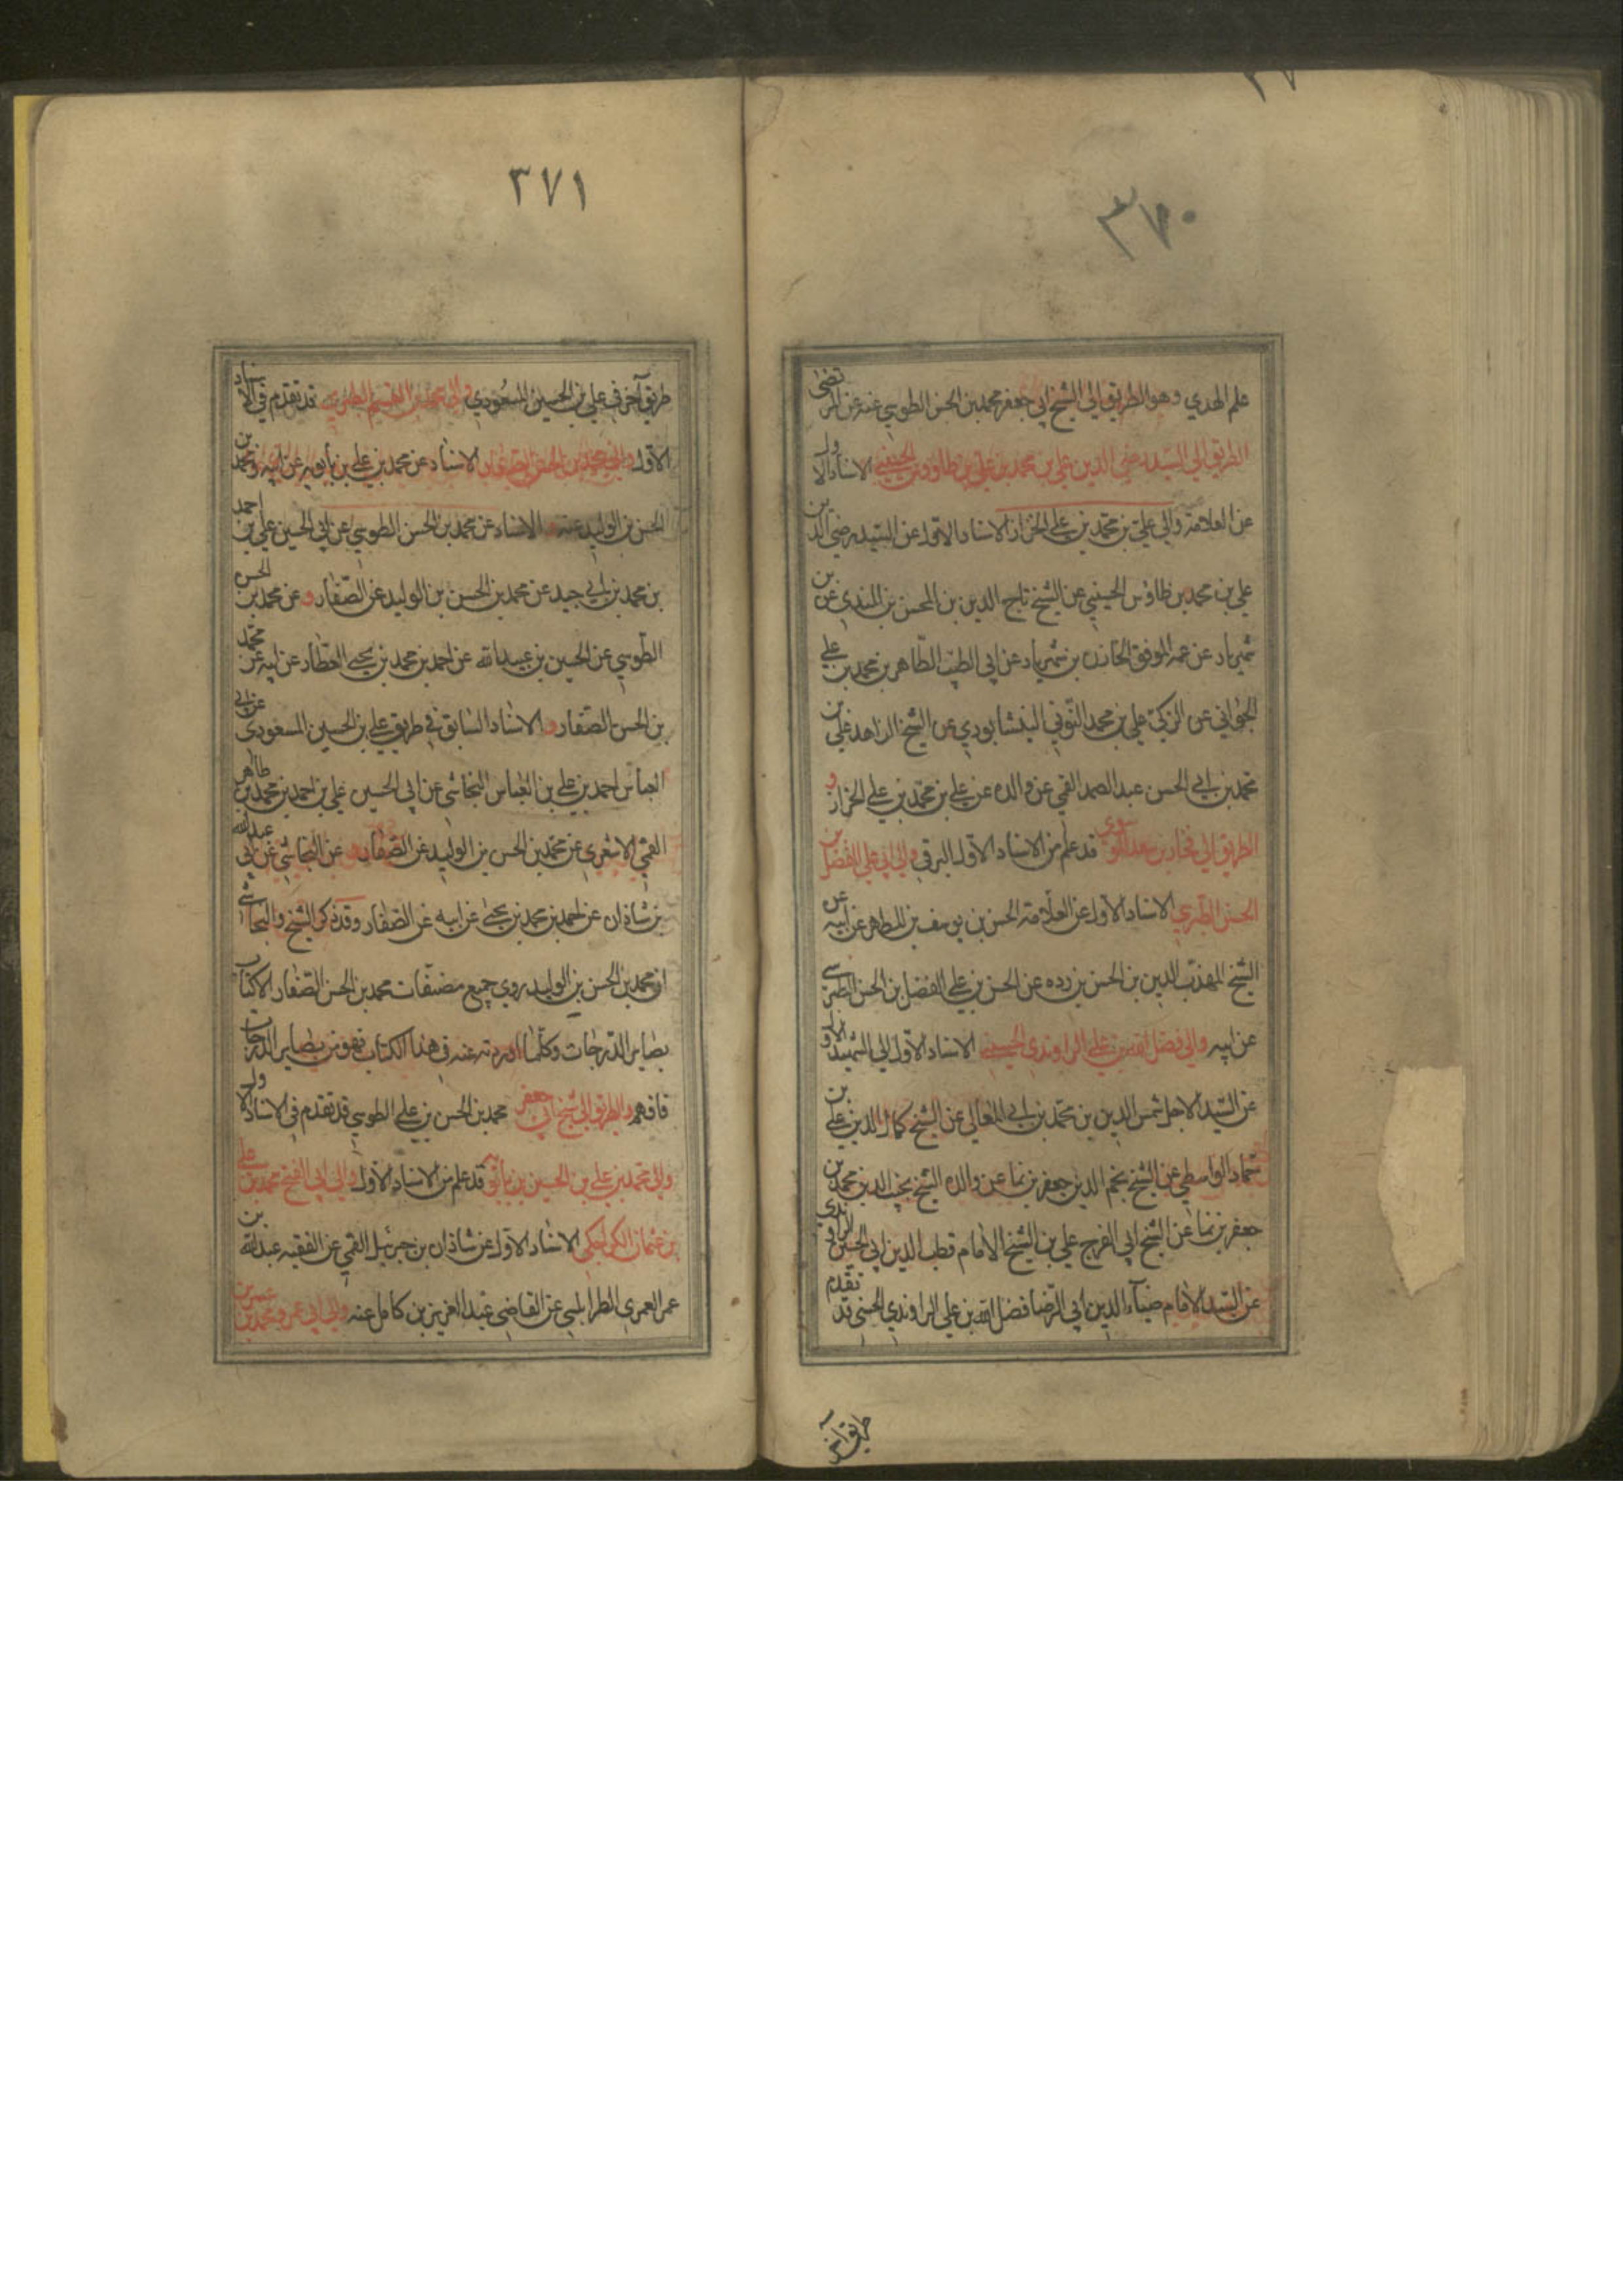 ٣٧٠
علم الهدي وهو الطريق الي الشيخ ابي جعفر محمد بن الحسن الطوسي عنه عن المرتضى
الطريق الي السيد رضي الدين علي بن محمد بن علي بن طاووس الحسيني الاسناد الاول
عن العلامة والي علي بن محمد بن علي الخزاز الاسناد الاول عن السيد رضي الدين
علي بن محمد بن طاوس الحسيني عن الشيخ تاج الدين بن المحسن بن عن
شهريار عن عمه الموفق الخازن بن شهريار عن ابي الطيب الطاهر بن محمد بن علي
الجواني عن الزكي علي بن محمد التوني النيشابوري عن الشيخ الزاهد علي بن
محمد بن ابي الحسن عبد الصمد القمي عن والده عن علي بن محمد بن علي الخزاز و
الطريق الي فخار بن معد الموسوي قد علم من الاسناد الاول البرقي والي ابي علي الفضل بن
الحسن الطبرسي الاسناد الاول عن العلامة الحسن بن يوسف بن المطهر عن ابيه عن
الشيخ المهذب الدين بن الحسن بن رده عن الحسن بن علي الفضل بن الحسن الطبرسي
عن ابيه والي فضل الله بن علي الراوندي الحسيني الاسناد الاول الي الشهيد الاول
عن السيد الاجل شمس الدين بن محمد بن ابي المعالي عن الشيخ كمال الدين علي بن
حماد الواسطي عن الشيخ نجم الدين جعفر بن نما عن والده الشيخ نجيب الدين محمد بن
جعفر بن نما عن الشيخ ابي الفرج علي بن الشيخ الامام قطب الدين ابي الحسين الراوندي
عن السيد الامام ضياء الدين ابي الرضا فضل الله بن علي الراوندي الحسني قد تقدم
طريق آخر
٣٧١
طريق آخر في علي بن الحسين المسعودي والي محمد بن القسم الطبري قد تقدم في الاسناد
الاول والي محمد بن الحسن الصفار الاسناد عن محمد بن علي بن بابويه عن ابيه ومحمد بن
الحسن بن الوليد عنه و الاسناد عن محمد بن الحسن الطوسي عن ابي الحسين علي بن احمد
بن محمد بن ابي جيد عن محمد بن الحسن بن الوليد عن الصفار و عن محمد بن الحسن
الطوسي عن الحسين بن عبيد الله عن احمد بن محمد بن يحيى العطار عن ابيه عن محمد
بن الحسن الصفار و الاسناد السابق في طريق علي بن الحسين المسعودي عن ابي
العباس احمد بن علي بن العباس النجاشي عن ابي الحسين علي بن احمد بن محمد بن طاهر
القمي الاشعري عن محمد بن الحسن بن الوليد عن الصفار و عن النجاشي عن ابي عبد الله
بن شاذان عن احمد بن محمد بن يحيى عن ابيه عن الصفار وقد ذكر الشيخ والنجاشي
ان محمد بن الحسن بن الوليد روي جميع مصنفات محمد بن الحسن الصفار الا كتاب
بصاير الدرجات وكلما اوردته عنه في هذا الكتاب فهو من بصاير الدرجات
فافهم والطريق الي شيخ ابي جعفر محمد بن الحسن بن علي الطوسي قد تقدم في الاسناد الاول
والي محمد بن علي بن الحسين بن بابويه قد علم من الاسناد الاول والي ابي الفتح محمد بن علي
بن عثمان الكراجكي الاسناد الاول عن شاذان بن جبرئيل القمي عن الفقيه عبد الله بن
عمر العمري الطرابلسي عن القاضي عبد العزيز بن كامل عنه والي ابي عمرو محمد بن عمر بن